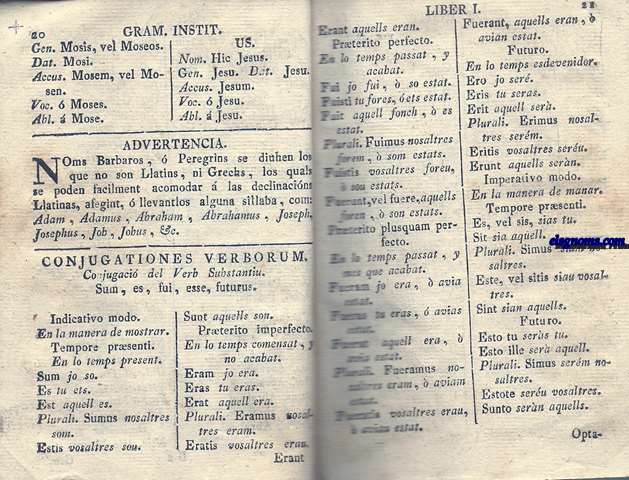 20 GRAM. INSTIT.
Gen. Mosis, vel Moseos.
Dat. Mosi.
Accus. Mosem, vel Mo-
sen.
Voc. ó Moses.
Abl. á Mose.
US.
Nom. Hic Jesus.
Gen. Jesu. Dat. Jesu.
Accus. Jesum.
Voc. ó Jesu.
Abl. á Jesu.
ADVERTENCIA.
NOms Barbaros, ó Peregrins se diuhen los
que no son Llatins, ni Grechs, los quals
se poden facilment acomodar á las declinacions
Llatinas, afegint, ó llevantlos alguna sillaba, com:
Adam, Adamus, Abraham, Abrahamus, Joseph,
Josephus, Job, Jobus, &c.
CONJUGATIONES VERBORUM.
Conjugació del Verb Substantiu.
Sum, es, fui, esse, futurus.
Indicativo modo.
En la manera de mostrar.
Tempore præsenti.
En lo temps present.
Sum jo so.
Es tu ets.
Est aquell es.
Plurali. Sumus nosaltres
som.
Estis vosaltres sou.
Sunt aquells son.
Præterito imperfecto.
En lo temps comensat, y
no acabat.
Eram jo era.
Eras tu eras.
Erat aquell era.
Plurali. Eramus nosal-
tres eram.
Eratis vosaltres erau.
Erant
LIBER I. 21
Erant aquells eran.
Præterito perfecto.
En lo temps passat, y
acabat.
Fui jo fui, ò so estat.
Fuisti tu fores, ó ets estat.
Fuit aquell fonch, ò es
estat.
Plurali. Fuimus nosaltres
forem, ò som estats.
Fuistis vosaltres foreu,
ò sou estats.
Fuerunt, vel fuere, aquells
foren, ò son estats.
Præterito plusquam per-
fecto.
En lo temps passat, y
mes que acabat.
Fueram jo era, ò avia
estat.
Fueras tu eras, ó avias
estat.
Fuerat aquell era, ò
avia estat.
Plurali. Fueramus no-
saltres eram, ò aviam
estat.
Fueratis vosaltres erau,
ò aviau estat.
Fuerant, aquells eran, ò
avian estat.
Futuro.
En lo temps esdevenidor.
Ero jo seré.
Eris tu seras.
Erit aquell serà.
Plurali. Erimus nosal-
tres serém.
Eritis vosaltres seréu.
Erunt aquells seràn.
Imperativo modo.
En la manera de manar.
Tempore præsenti.
Es, vel sis, sias tu.
Sit sia aquell.
Plurali. Simus siam no-
saltres.
Este, vel sitis siau vosal-
tres.
Sint sian aquells.
Futuro.
Esto tu seràs tu.
Esto ille serà aquell.
Plurali. Simus serém no-
saltres.
Estote seréu vosaltres.
Sunto seràn aquells.
Opta-
elsgnoms.com